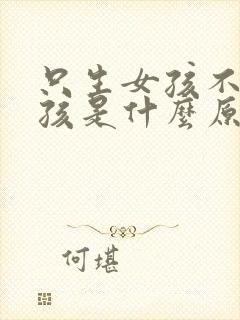 只生女孩不
孩是什麼原
何堪